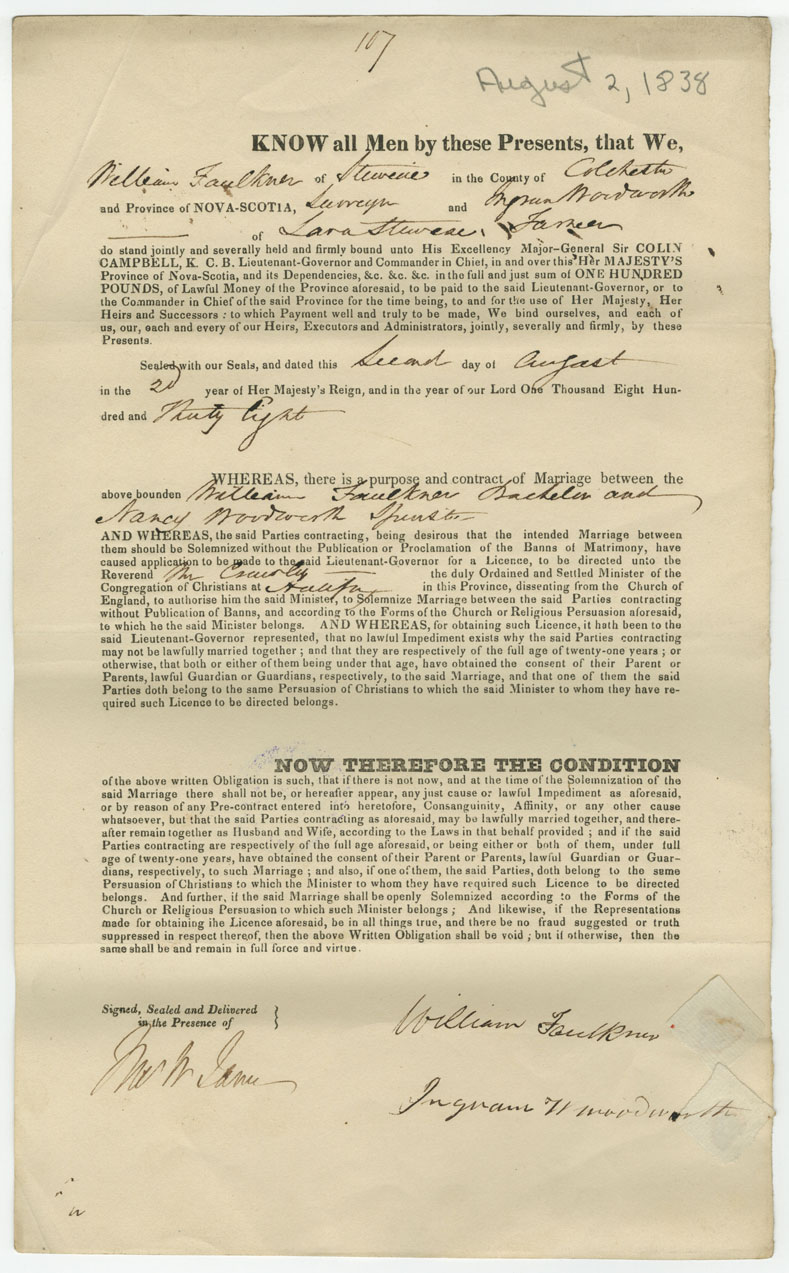 107
August 2, 1838
KNOW all Men by these Presents, that We,
William Faulkner of in the County of Colchester
and Province of NOVA-SCOTIA, and Ingram Woodworth
of Farmer
do stand jointly and severally held and firmly bound unto His Excellency Major-General Sir COLIN
CAMPBELL, K. C. B. Lieutenant-Governor and Commander in Chief, in and over this Her MAJESTY'S
Province of Nova-Scotia, and its Dependencies, &c. &c. &c. in the full and just sum of ONE HUNDRED
POUNDS, of Lawful Money of the Province aforesaid, to be paid to the said Lieutenant-Governor, or to
the Commander in Chief of the said Province for the time being, to and for the use of Her Majesty, Her
Heirs and Successors : to which Payment well and truly to be made, We bind ourselves, and each of
us, our, each and every of our Heirs, Executors and Administrators, jointly, severally and firmly, by these
Presents.
Sealed with our Seals, and dated this Second day of August
in the 2d year of Her Majesty's Reign, and in the year of our Lord One Thousand Eight Hun-
dred and Thirty Eight
WHEREAS, there is a purpose and contract of Marriage between the
above bounden William Faulkner Bachelor and
Nancy Woodworth Spinster
AND WHEREAS, the said Parties contracting, being desirous that the intended Marriage between
them should be Solemnized without the Publication or Proclamation of the Banns of Matrimony, have
caused application to be made to the said Lieutenant-Governor for a Licence, to be directed unto the
Reverend Mr the duly Ordained and Settled Minister of the
Congregation of Christians at Halifax in this Province, dissenting from the Church of
England, to authorise him the said Minister, to Solemnize Marriage between the said Parties contracting
without Publication of Banns, and according to the Forms of the Church or Religious Persuasion aforesaid,
to which he the said Minister belongs. AND WHEREAS, for obtaining such Licence, it hath been to the
said Lieutenant-Governor represented, that no lawful Impediment exists why the said Parties contracting
may not be lawfully married together ; and that they are respectively of the full age of twenty-one years ; or
otherwise, that both or either of them being under that age, have obtained the consent of their Parent or
Parents, lawful Guardian or Guardians, respectively, to the said Marriage, and that one of them the said
Parties doth belong to the same Persuasion of Christians to which the said Minister to whom they have re-
quired such Licence to be directed belongs.
NOW THEREFORE THE CONDITION
of the above written Obligation is such, that if there is not now, and at the time of the Solemnization of the
said Marriage there shall not be, or hereafter appear, any just cause or lawful Impediment as aforesaid,
or by reason of any Pre-contract entered into heretofore, Consanguinity, Affinity, or any other cause
whatsoever, but that the said Parties contracting as aforesaid, may be lawfully married together, and there-
after remain together as Husband and Wife, according to the Laws in that behalf provided ; and if the said
Parties contracting are respectively of the full age aforesaid, or being either or both of them, under full
age of twenty-one years, have obtained the consent of their Parent or Parents, lawful Guardian or Guar-
dians, respectively, to such Marriage ; and also, if one of them, the said Parties, doth belong to the same
Persuasion of Christians to which the Minister to whom they have required such Licence to be directed
belongs. And further, if the said Marriage shall be openly Solemnized according to the Forms of the
Church or Religious Persuasion to which such Minister belongs ; And likewise, if the Representations
made for obtaining the Licence aforesaid, be in all things true, and there be no fraud suggested or truth
suppressed in respect thereof, then the above Written Obligation shall be void ; but if otherwise, then the
same shall be and remain in full force and virtue.
Signed, Sealed and Delivered
in the Presence of
William Faulkner
Ingraam Woodworth